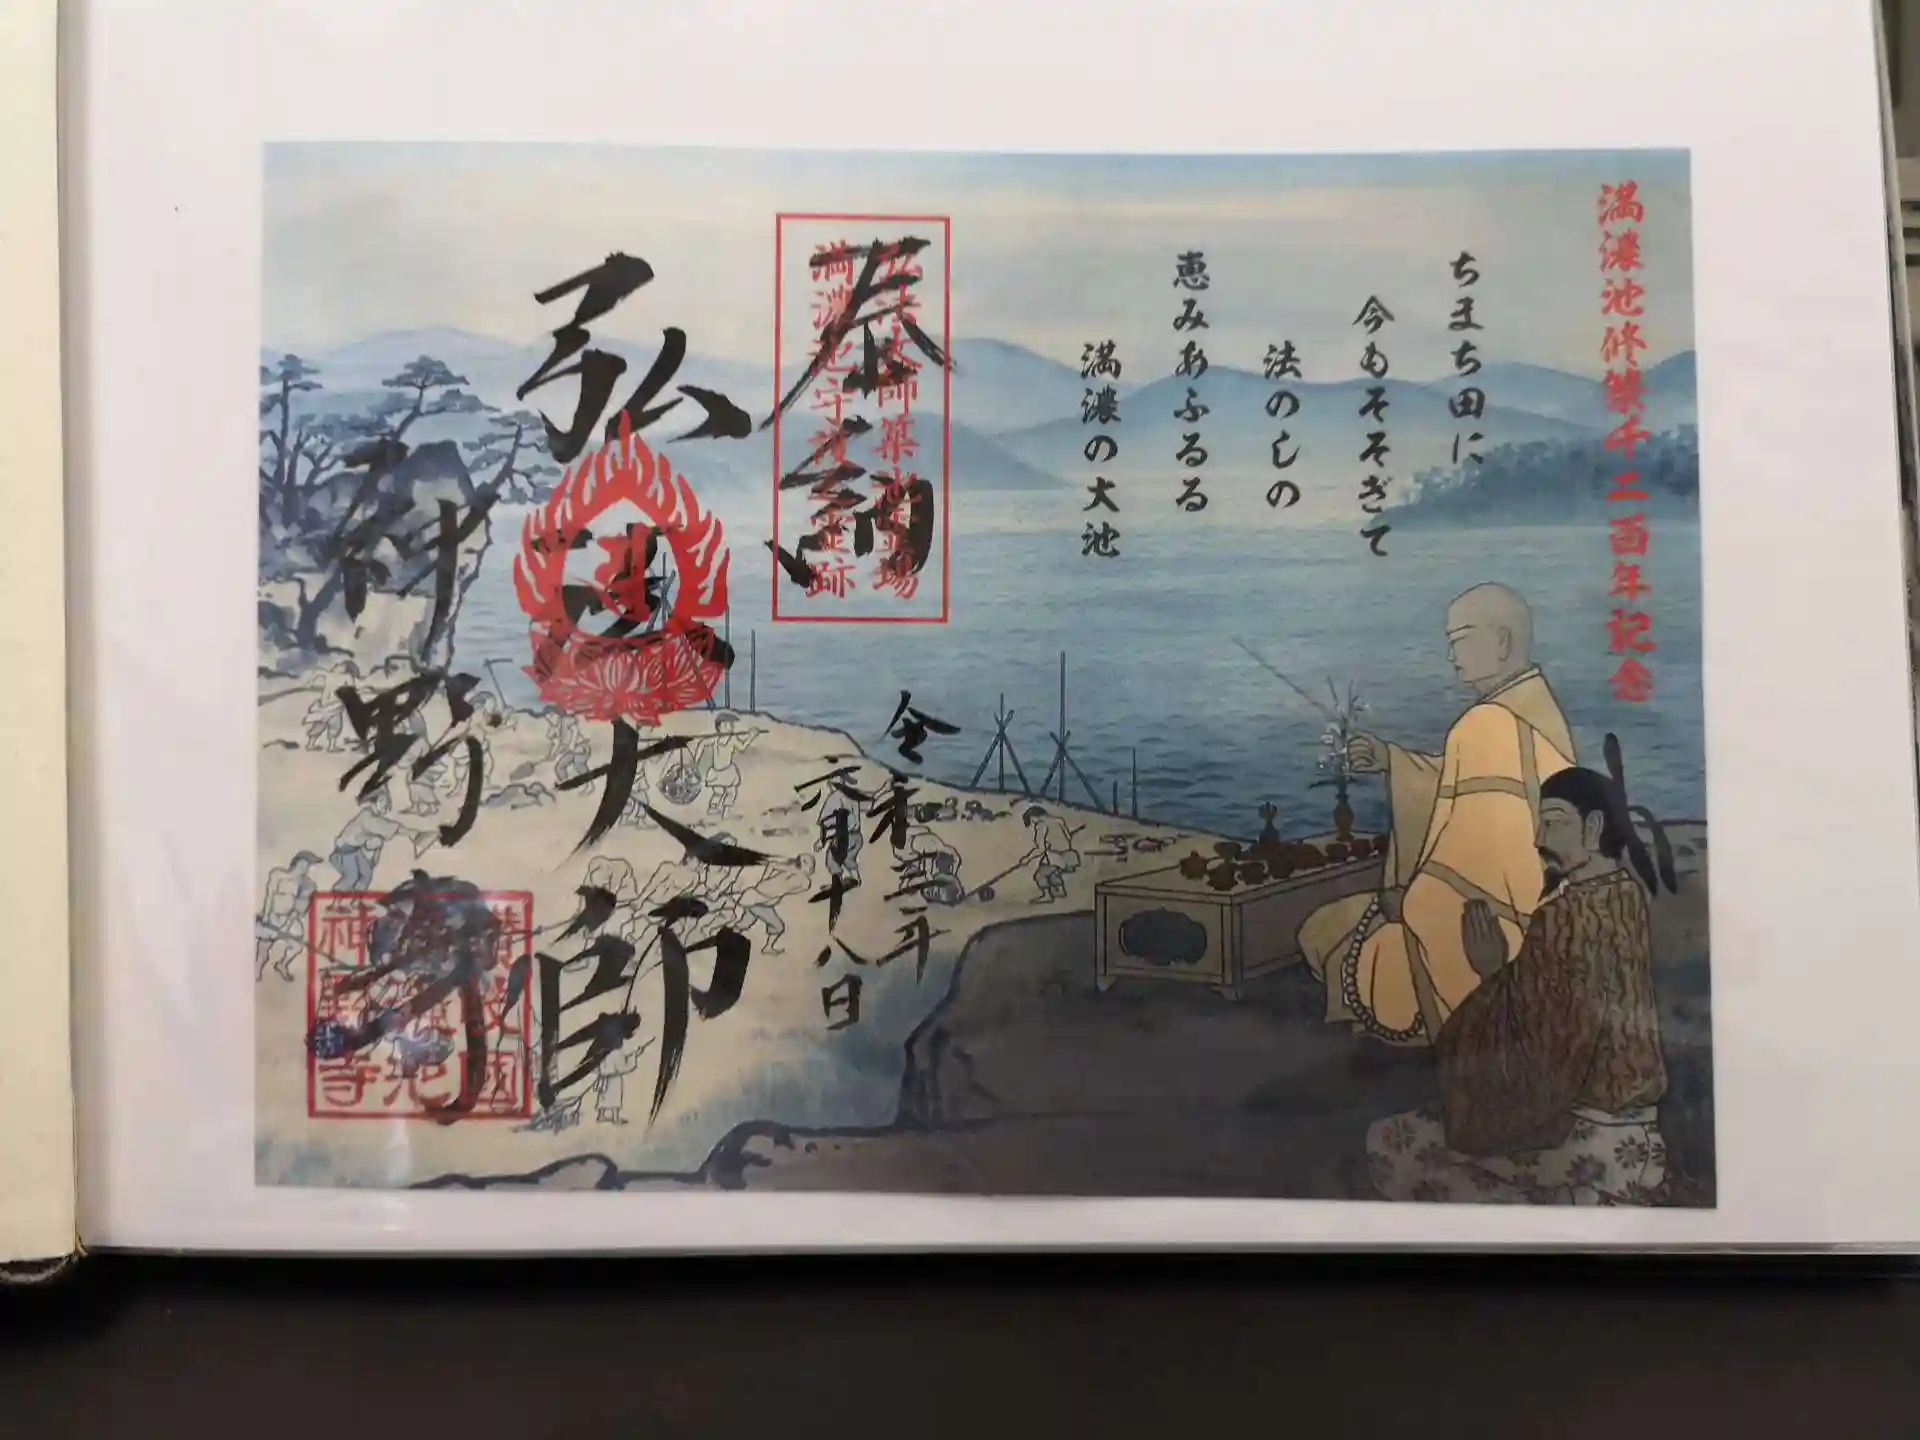 満濃池修築千二百年記念
ちまち田に
今もそそぎて
法のしの
恵みあふるる
満濃の大池
奉納
弘法大師築池道場
満濃池守護之霊跡
令和三年
六月十八日
弘法大師
神野寺
讃岐國
満濃池
神野寺